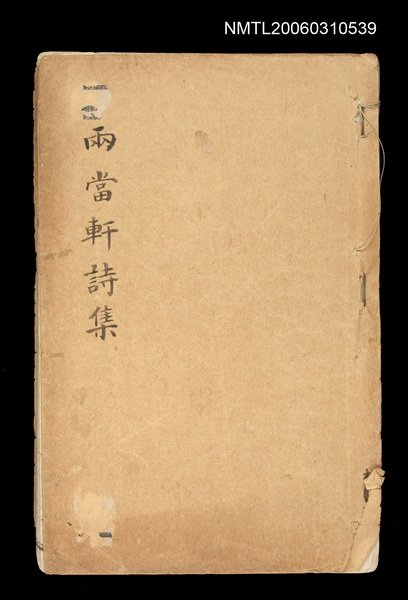 NMTL20060310539
兩當軒詩集